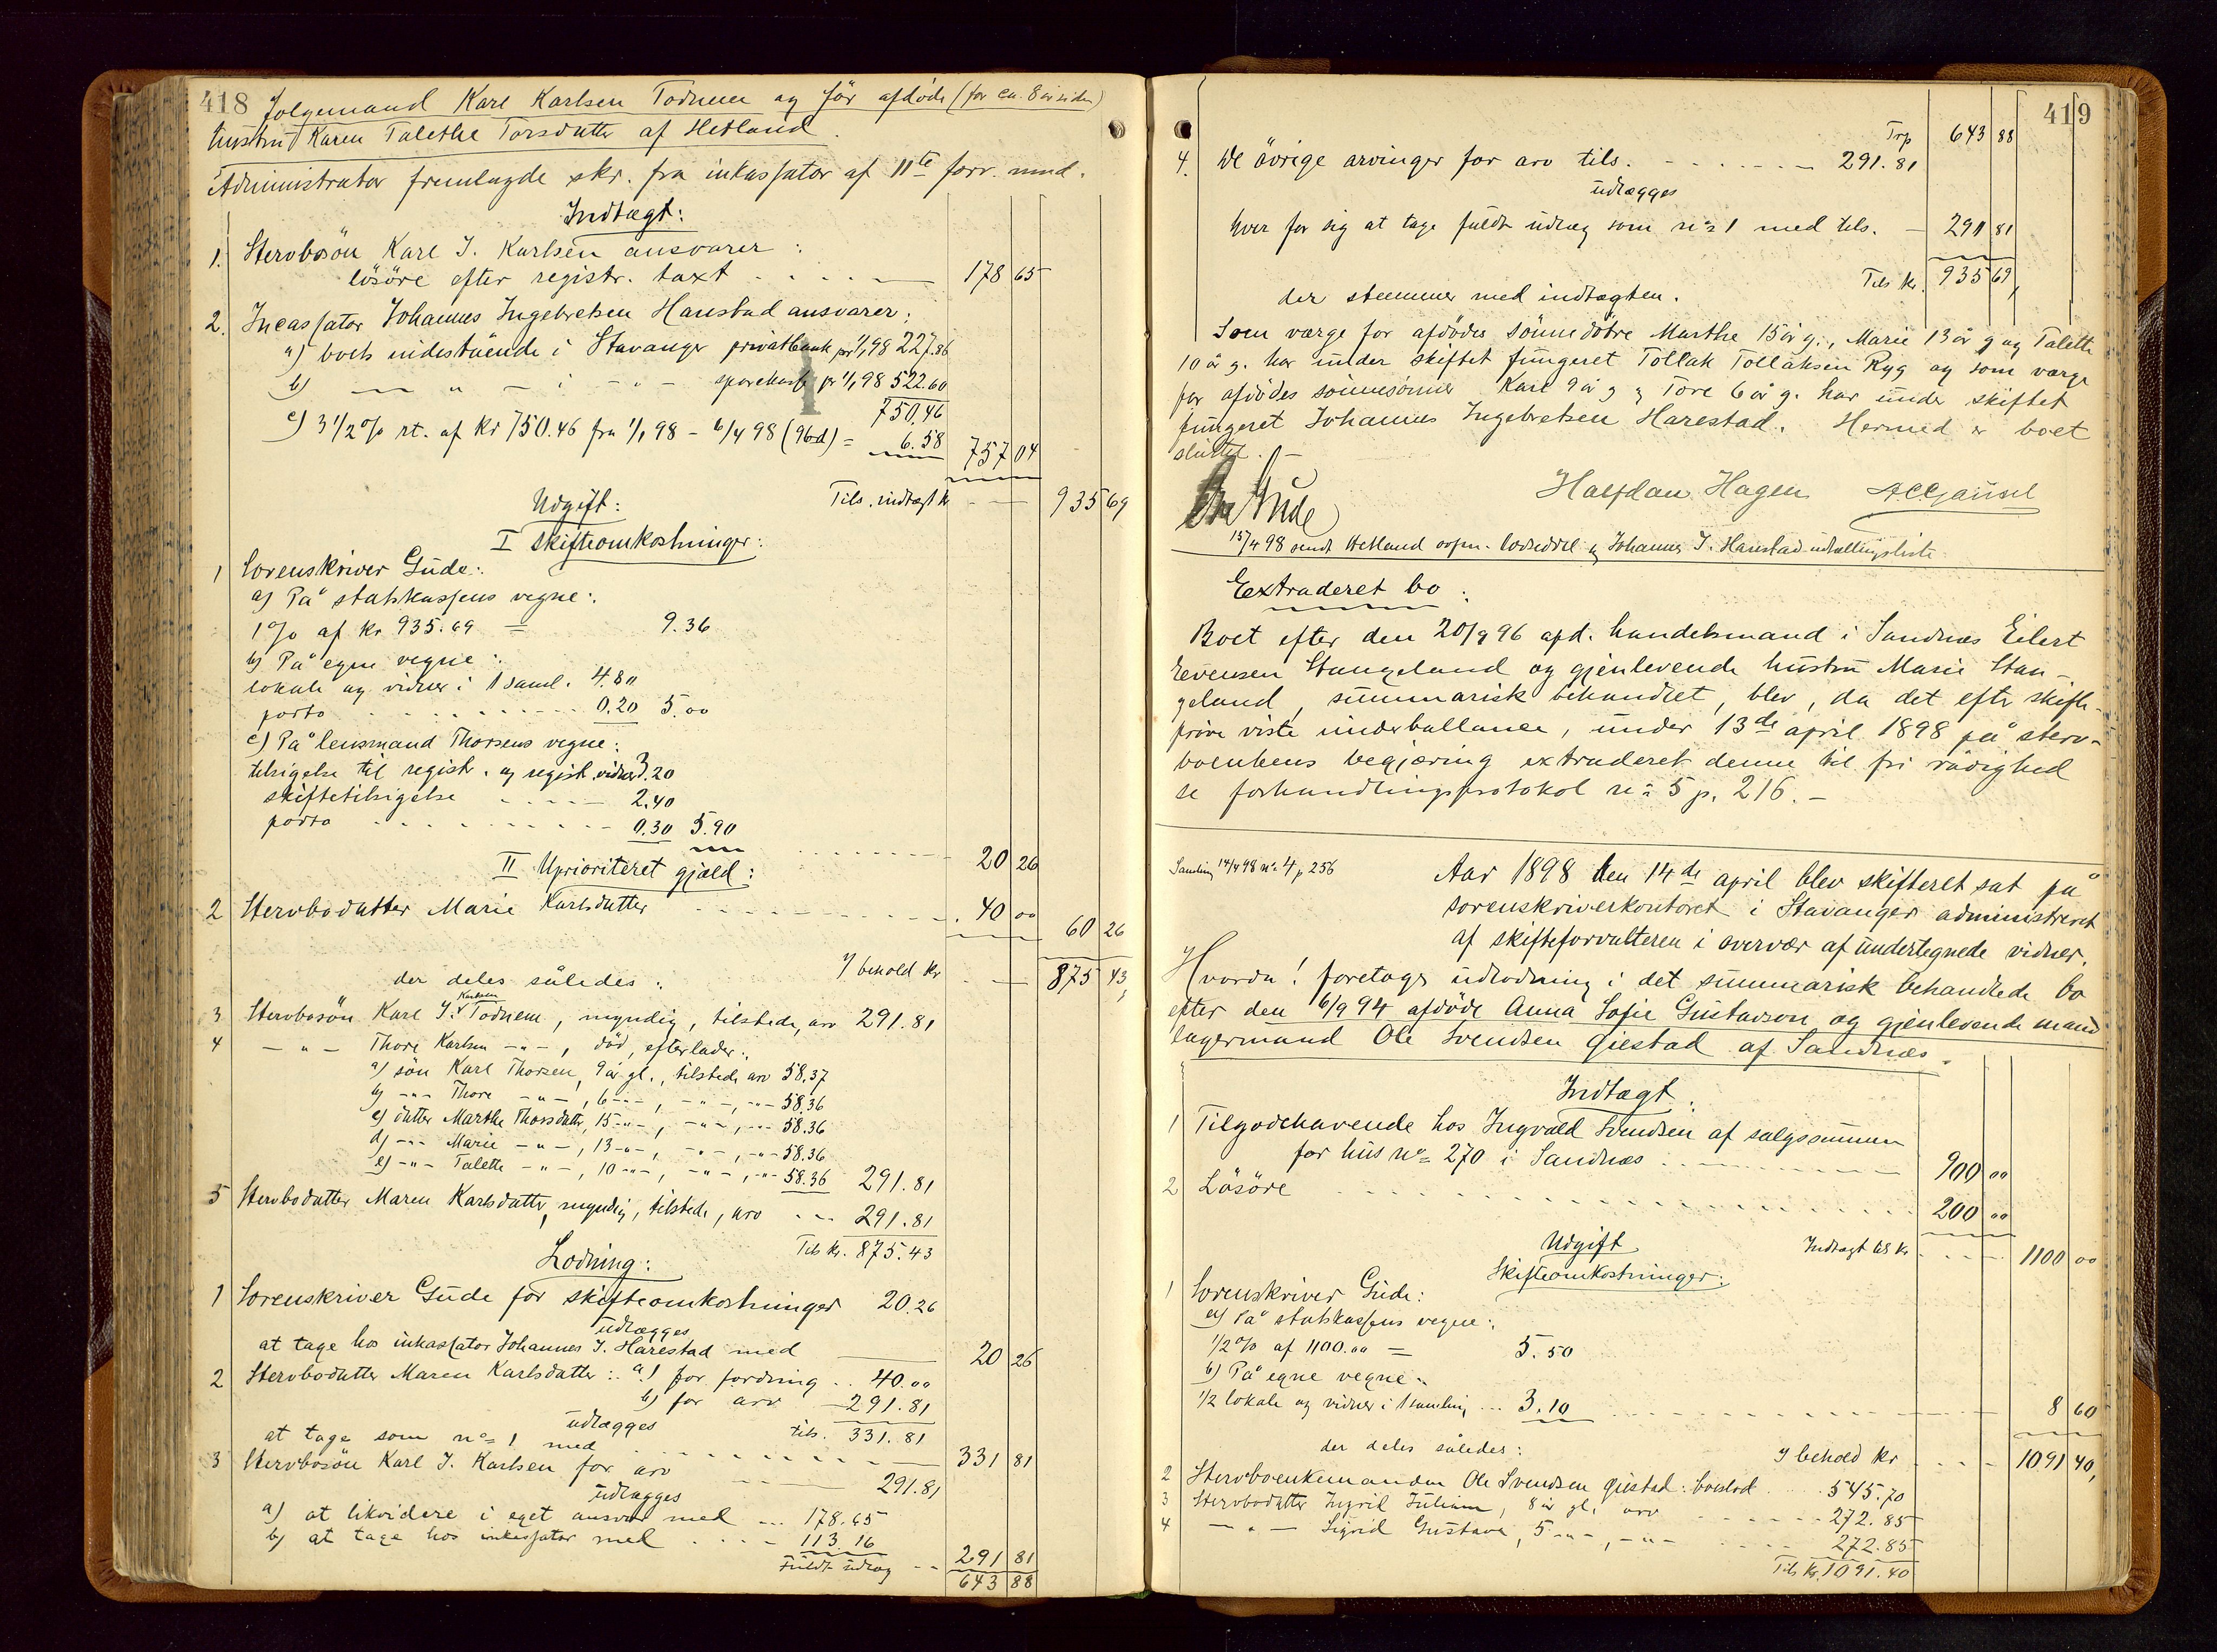 418
Folgemand Karl Karlsen Todnem og før afdøde (for ca. 8 år siden)
hustru Karen Talethe Torsdatter af Hetland.
Administrator fremlagde skr. fra inkassator af 11te forr. mnd.
Indtægt:
1. Stervbosøn Karl J. Karlsen ansvarer:
løsøre efter registr. taxt . . . . — 178 65
2. Incassator Johannes Ingebretsen Harestad ansvarer:
a) boets indestående i Stavanger privatbank pr 1/1 98 227.86
b) — " — i — " — sparekasse pr 1/1 98 522.60
750.46
c) 3 1/2 % rt. af kr 750.46 fra 1/1 98 – 6/4 98 (96d) = 6.58 757 04
Tils. indtægt kr — 935 69
Udgift:
I Skifteomkostninger:
1 Sorenskriver Gude:
a) På statskassens vegne:
1 % af kr 935.69 = 9.36
b) På egne vegne:
lokale og vidner i 1 saml. 4.80
porto . . . . . 0.20 5.00
c) På lensmand Thorsens vegne:
tilsigelse til registr. og registr. vidner 3.20
skiftetilsigelse . . . . — 2.40
porto . . . . . . — 0.30 5.90
20 26
II Uprioriteret gjæld:
2 Stervbodatter Marie Karlsdatter . . . . 40 00 60 26
I behold kr — 875 43
der deles således:
3 Stervbosøn Karl J. Karlsen Todnem, myndig, tilstede, arv 291.81
4 — " — Thore Karlsen — " —, død, efterlader:
a) søn Karl Thorsen, 9 år gl., tilstede arv 58.37
b) — " — Thore — " —, 6 — " —, — " —, — " — 58.36
c) datter Marthe Thorsdatter, 15 — " —, — " —, — " — 58.36
d) — " — Marie — " —, 13 — " —, — " —, — " — 58.36
e) — " — Talette — " —, 10 — " —, — " —, — " — 58.36 291.81
5 Stervbodatter Maren Karlsdatter, myndig, tilstede, arv . . . 291.81
Tils kr. 875.43
Lodning:
1 Sorenskriver Gude for skifteomkostninger 20.26
udlægges
at tage hos inkassator Johannes I. Harestad med — 20 26
2 Stervbodatter Maren Karlsdatter: a) for fordring . . 40.00
b) for arv — 291.81
udlægges tils. 331.81
at tage som no 1 med . . . . . — 331 81
3 Stervbosøn Karl J. Karlsen for arv — 291.81
udlægges
a) at likvidere i eget ansvar med . . . 178.65
b) at tage hos inkassator med . . . . 113.16
Fuldt udlæg — 291 81
643 88
419
Trp 643 88
4. De øvrige arvinger for arv tils. . . . . — 291.81
udlægges
hver for sig at tage fuldt udlæg som no 1 med tils. — 291 81
Tils kr. 935 69
der stemmer med indtægten.
Som værge for afdødes sønnedøtre Marthe 15 år g., Marie 13 år g og Talette
10 år g. har under skiftet fungeret Tollak Tollaksen Ryg og som værge
for afdødes sønnesønner Karl 9 år g og Tore 6 år g. har under skiftet
fungeret Johannes Ingebretsen Harestad. Hermed er boet
sluttet. —
Gude Halfdan Hagen
15/4 98 sendt Hetland ovfm. lodseddel og Johannes I. Harestad udtællingsliste
Extraderet bo:
Boet efter den 20/9 96 afd. handelsmand i Sandnæs Eilert
Evensen Stangeland og gjenlevende hustru Marie Stan-
geland, summarisk behandlet, blev, da det efter skifte-
prøve viste underballance, under 13de april 1898 på sterv-
boenkens begjæring extraderet denne til fri rådighed
se forhandlingsprotokol no 5 p. 216. —
Samling 14/4 98 no 4 p 256
Aar 1898 den 14de april blev skifteret sat på
sorenskriverkontoret i Stavanger administreret
af skifteforvalteren i overvær af undertegnede vidner.
Hvorda! foretoges udlodning i det summarisk behandlede bo
efter den 6/9 94 afdøde Anna Sofie Gustavson og gjenlevende mand
lagermand Ole Svendsen Gjestad af Sandnæs.
Indtægt:
1 Tilgodehavende hos Ingvald Svendsen af salgssummen
for hus no 270 i Sandnæs . . . — 900 00
2 Løsøre . . . . . . . 200 00
Indtægt tils kr . . . — 1100 00
Udgift
Skifteomkostninger:
1 Sorenskriver Gude:
a) På statskassens vegne:
1/2 % af 1100.00 = 5.50
b) På egne vegne:
1/2 lokale og vidner i 1 samling . . . 3.10 8 60
I behold kr . . . — 1091 40
der deles således:
2 Stervboenkemanden Ole Svendsen Gjestad: boeslod . . . 545.70
3 Stervbodatter Ingvil Juliane, 8 år gl., arv . . . 272.85
4 — " — Sigrid Gustava, 5 — " —, — " — . . . 272.85
Tils kr. 1091.40